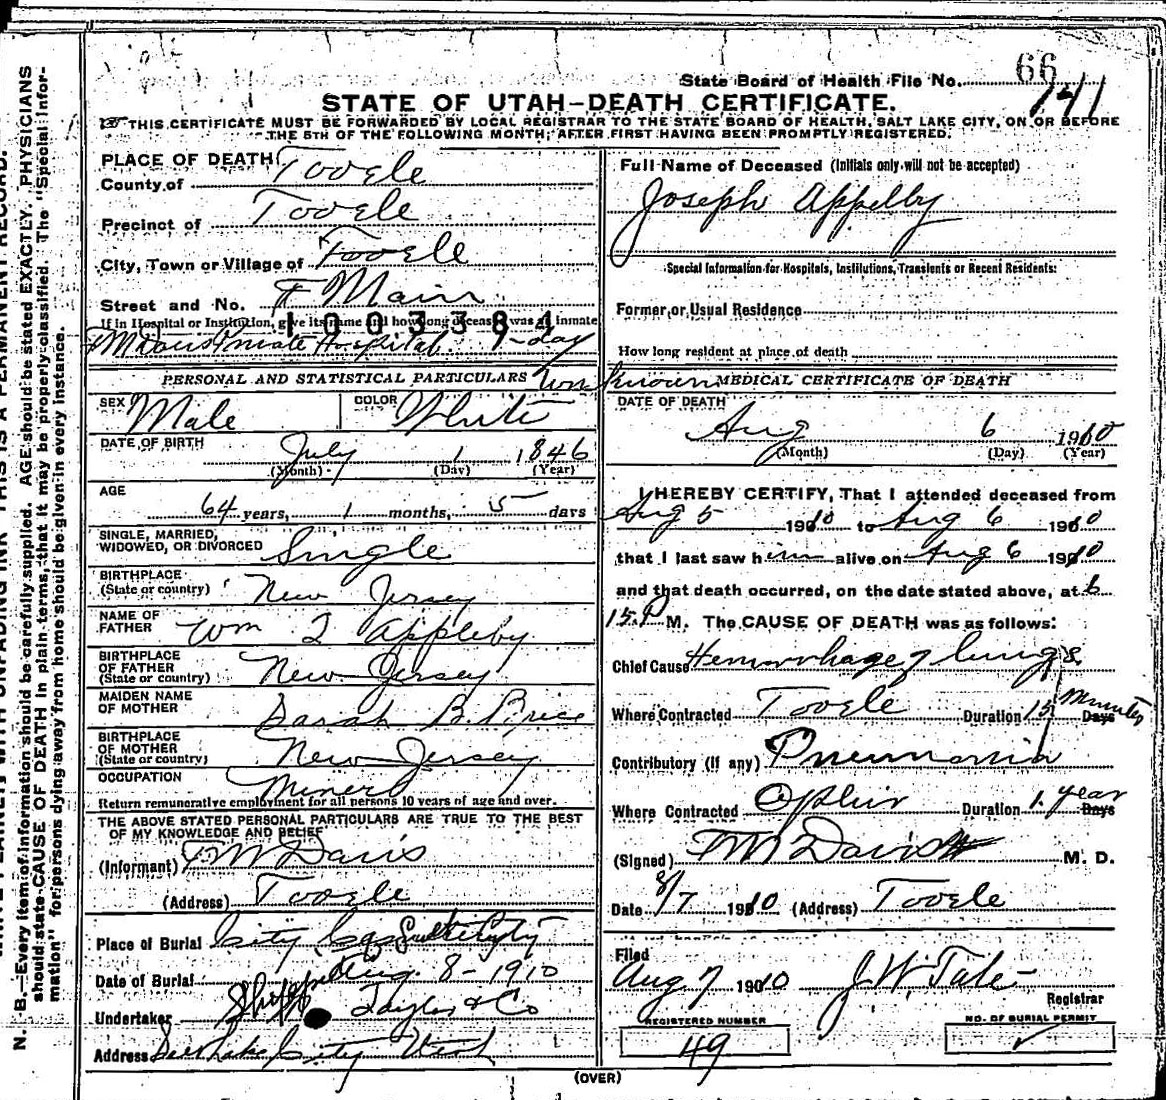 State Board of Health File No. 66
141
STATE OF UTAH-DEATH CERTIFICATE.
THIS CERTIFICATE MUST BE FORWARDED BY LOCAL REGISTRAR TO THE STATE BOARD OF HEALTH, SALT LAKE CITY, ON OR BEFORE
THE 5TH OF THE FOLLOWING MONTH, AFTER FIRST HAVING BEEN PROMPTLY REGISTERED.
PLACE OF DEATH
County of Tooele
Precinct of Tooele
City, Town or Village of Tooele
Street and No. Main
If in Hospital or Institution, give its name and how long deceased was an inmate
1003384
FM Davis Private Hospital 1-day
PERSONAL AND STATISTICAL PARTICULARS
SEX Male COLOR White
DATE OF BIRTH July 1 1846
(Month) (Day) (Year)
AGE 64 years, 1 months, 5 days
SINGLE, MARRIED,
WIDOWED, OR DIVORCED Single
BIRTHPLACE
(State or country) New Jersey
NAME OF
FATHER Wm Appleby
BIRTHPLACE
OF FATHER
(State or country) New Jersey
MAIDEN NAME
OF MOTHER Sarah B. Price
BIRTHPLACE
OF MOTHER
(State or country) New Jersey
OCCUPATION Miner
Return remunerative employment for all persons 10 years of age and over.
THE ABOVE STATED PERSONAL PARTICULARS ARE TRUE TO THE BEST
OF MY KNOWLEDGE AND BELIEF
(Informant) FM Davis
(Address) Tooele
Place of Burial City
Date of Burial Aug. 8-1910
Undertaker Taylor & Co
Address Salt Lake City Utah
Full Name of Deceased (Initials only will not be accepted)
Joseph Appelby
Special Information for Hospitals, Institutions, Transients or Recent Residents:
Former or Usual Residence
How long resident at place of death
Unknown
MEDICAL CERTIFICATE OF DEATH
DATE OF DEATH
Aug 6 1910
(Month) (Day) (Year)
I HEREBY CERTIFY, That I attended deceased from
Aug 5 1910 to Aug 6 1910
that I last saw him alive on Aug 6 1910
and that death occurred, on the date stated above, at 6
15 P M. The CAUSE OF DEATH was as follows:
Chief Cause Hemorrhage lungs
Where Contracted Tooele Duration 15 minutes Days
Contributory (if any) Pneumonia
Where Contracted Ophir Duration 1 year Days
(Signed) FM Davis M. D.
Date 8/7 1910 (Address) Tooele
Filed
Aug 7 1910 J.W. Tate
Registrar
REGISTERED NUMBER
49
NO. OF BURIAL PERMIT
(OVER)
N. B.—Every item of information should be carefully supplied. AGE should be stated EXACTLY. PHYSICIANS
should state CAUSE OF DEATH in plain terms, that it may be properly classified. The "Special Infor-
mation" for persons dying away from home should be given in every instance.